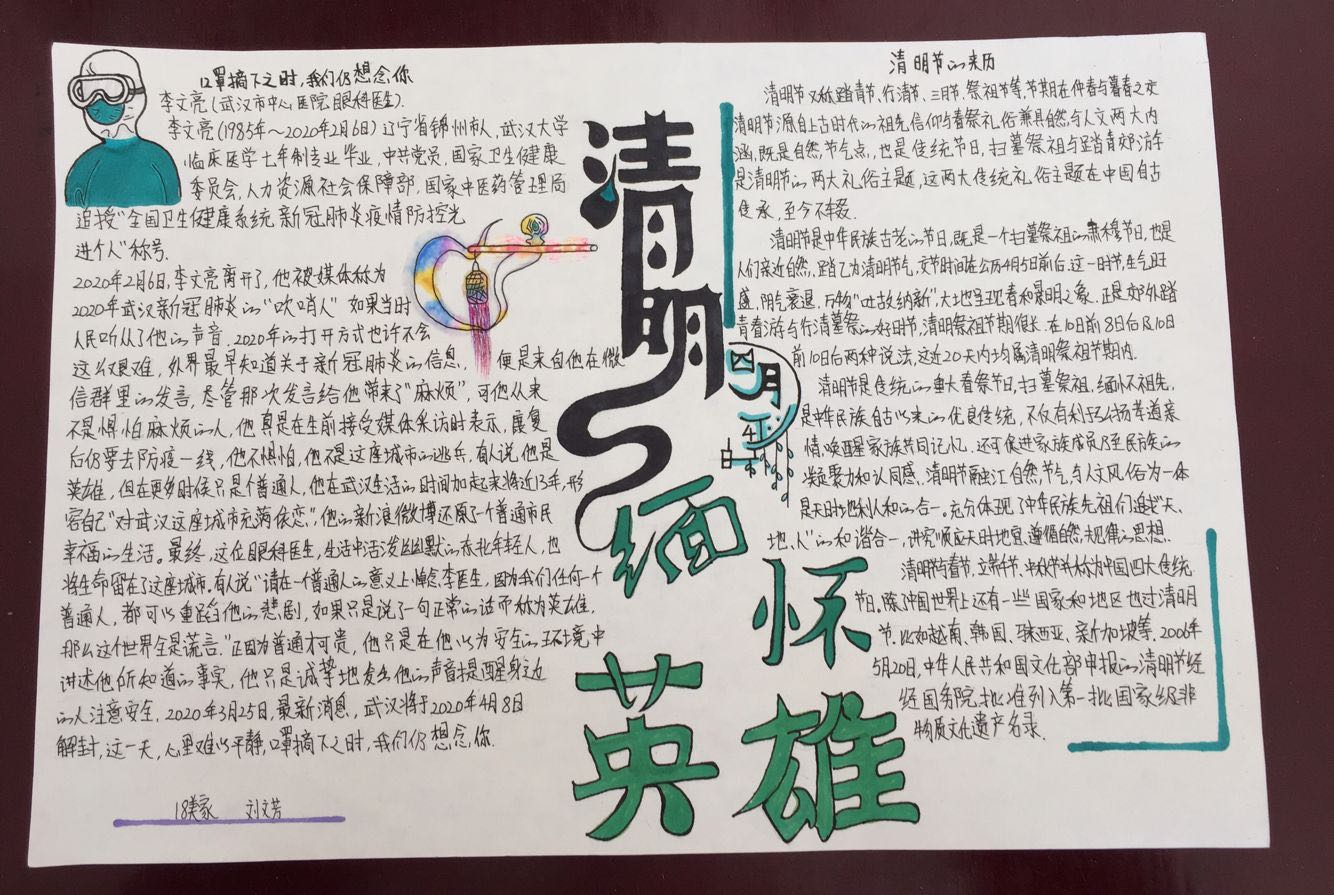 口罩摘下之时，我们仍想念你
李文亮（武汉市中心医院眼科医生）.
李文亮（1985年～2020年2月6日）辽宁省锦州市人，武汉大学
临床医学七年制专业毕业，中共党员，国家卫生健康
委员会，人力资源社会保障部，国家中医药管理局
追授“全国卫生健康系统新冠肺炎疫情防控先
进个人”称号.
2020年2月6日，李文亮离开了，他被媒体称为
2020年武汉新冠肺炎的“吹哨人”如果当时
人民听从了他的声音，2020年的打开方式也许不会
这么艰难，外界最早知道关于新冠肺炎的信息，便是来自他在微
信群里的发言，尽管那次发言给他带来了“麻烦”，可他从来
不是惧怕麻烦的人，他真是在生前接受媒体采访时表示，康复
后仍要去防疫一线，他不惧怕，他不是这座城市的逃兵，有人说，他是
英雄，但在更多时候只是个普通人，他在武汉生活的时间加起来将近13年，形
容自己“对武汉这座城市充满依恋”，他的新浪微博还原了一个普通市民
幸福的生活。最终，这位眼科医生，生活中活泼幽默的东北年轻人，也
将生命留在了这座城市。有人说“请在一个普通人的意义上悼念李医生，因为我们任何一个
普通人，都可以重蹈他的悲剧，如果只是说了一句正常的话而称为英雄，
那么这个世界全是谎言.”正因为普通才可贵，他只是在他以为安全的环境中
讲述他所知道的事实，他只是诚挚地发出他的声音提醒身边
的人注意安全，2020年3月25日，最新消息，武汉将于2020年4月8日
解封，这一天，心里难以平静，口罩摘下之时，我们仍想念你.
18美家 刘文芳
清明
四月
4
日
缅怀
英雄
清明节的来历
清明节又称踏青节、行清节、三月节、祭祖节等，节期在仲春与暮春之交
清明节源自上古时代的祖先信仰与春祭礼俗兼具自然与人文两大内
涵，既是自然节气点，也是传统节日，扫墓祭祖与踏青郊游
是清明节的两大礼俗主题，这两大传统礼俗主题在中国自古
传承，至今不辍.
清明节是中华民族古老的节日，既是一个扫墓祭祖的肃穆节日，也是
人们亲近自然，踏乙为清明节气，交节时间在公历4月5日前后.这一时节，生气旺
盛，阴气衰退，万物“吐故纳新”，大地呈现春和景明之象，正是郊外踏
青春游与行清墓祭的好时节，清明祭祖节期很长，在10日前8日后及10日
前10日后两种说法，这近20天内均属清明祭祖节期内.
清明节是传统的重大春祭节日，扫墓祭祖，缅怀祖先，
是中华民族自古以来的优良传统，不仅有利于弘扬孝道亲
情、唤醒家族共同记忆，还可促进家族成员乃至民族的
凝聚力和认同感，清明节融汇自然节气与人文风俗为一体
是天时地利人和的合一，充分体现了中华民族先祖们追求“天、
地、人”的和谐合一，讲究顺应天时地宜、遵循自然规律的思想.
清明节与春节、立端午节、中秋节并称为中国四大传统
节日，除了中国世界上还有一些国家和地区也过清明
节，比如越南、韩国、马来西亚、新加坡等，2006年
5月20日，中华人民共和国文化部申报的清明节经
经国务院批准列入第一批国家级非
物质文化遗产名录.